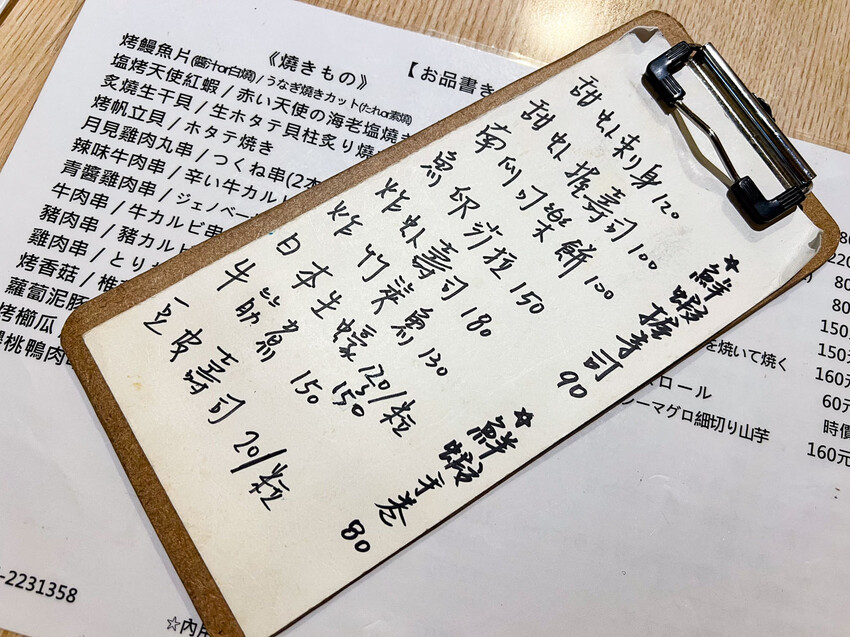 甜虾刺身 120
甜虾握壽司 100
南瓜可樂餅 100
魚卵莎拉 150
炸虾壽司 180
炸竹筴魚 130
日本生蠔 120/粒
牛筋煮 150 150
豆皮壽司 20/粒
☆鮮蝦握壽司 90
☆鮮蝦手卷 80
【お品書き
《燒きもの》
烤鰻魚片(醬汁or白燒)/うなぎ燒きカット(たれor素燒)
塩烤天使紅蝦/赤い天使の海老塩燒き
炙燒生干貝/生ホタテ貝柱炙り燒
烤帆立貝/ホタテ燒き
月見雞肉丸串/つくね串(2本
辣味牛肉串/辛い牛カルビ
青醬雞肉串/ジェノベー
牛肉串/牛カルビ串
豬肉串/豬カルト
雞肉串/とり
烤香菇/椎
蘿蔔泥豚
烤櫛瓜
桃鴨肉
80
220
80
80
150
150元
160元
60元
時價
160元
を焼いて焼く
スロール
シーマグロ細切り山芋
-2231358
☆內用